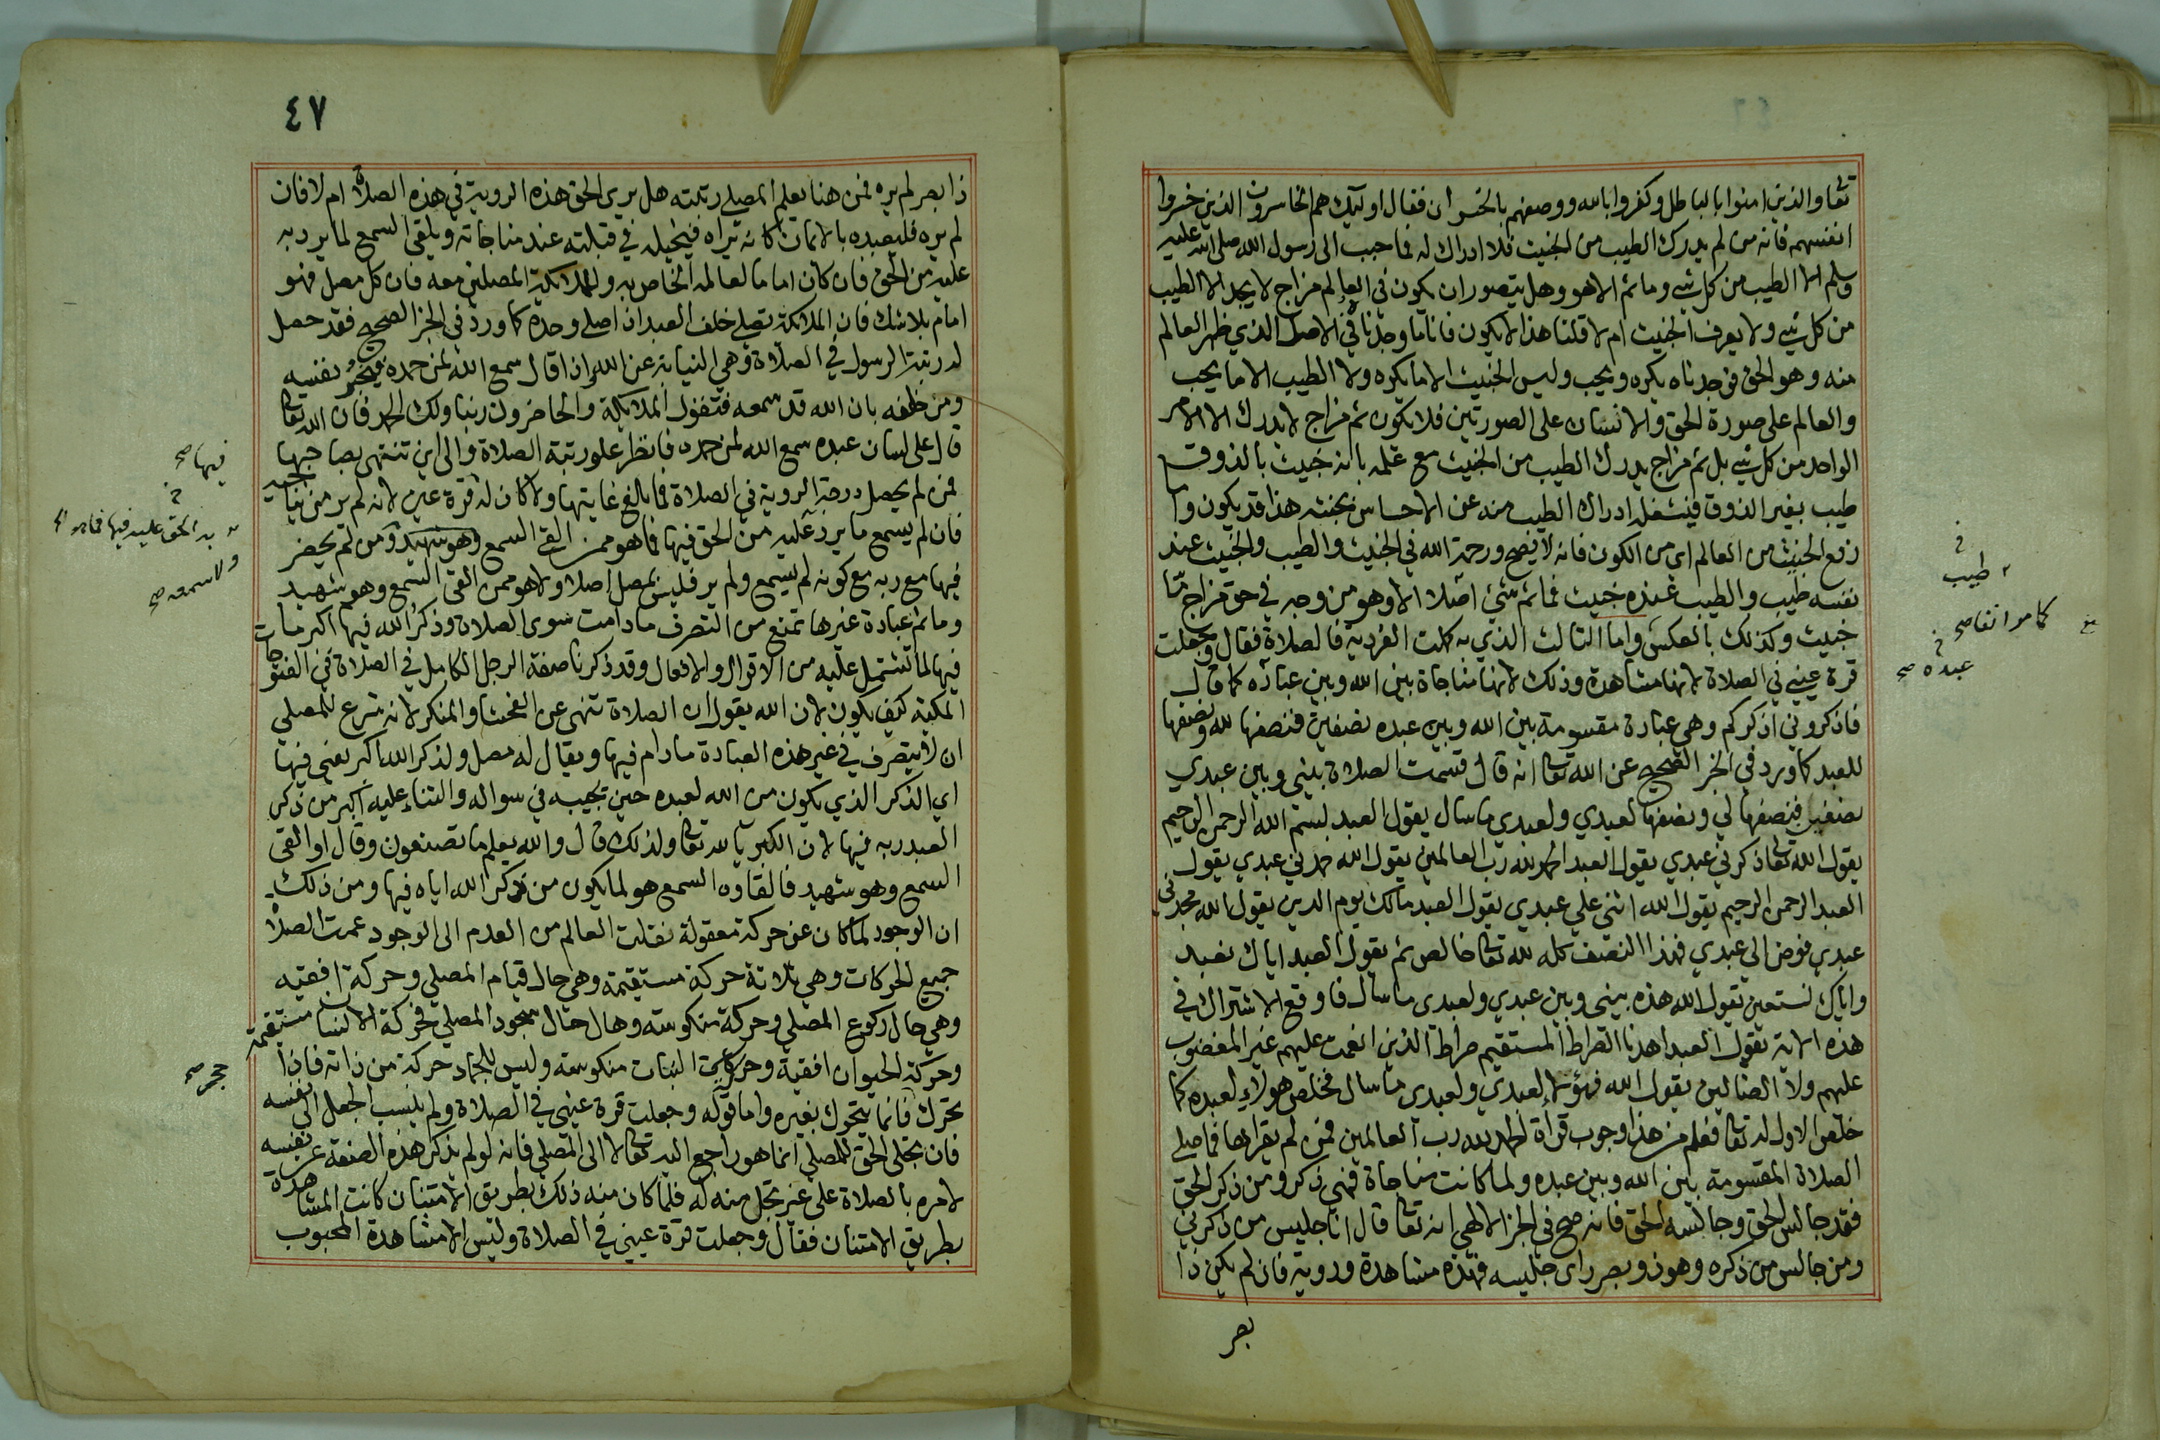 تعا والذين امنوا بالباطل وكفروا بالله ووصفهم بالخسران فقال اوليك هم الخاسرون الذين خسروا
انفسهم فانه من لم يدرك الطيب من الخبيث فلا ادراك له فما حبب الى رسول الله صلى الله عليه
وسلم الا الطيب من كل شي وما ثم الا هو وهل يتصور ان يكون في العالم مزاج لا يجد الا الطيب
من كل شي ولا يعرف الخبيث ام لا قلنا هذا لا يكون فانا ما وجدناه في الاصل الذي ظهر العالم
منه وهو الحق فوجدناه يكره ويحب وليس الخبيث الا ما يكره ولا الطيب الا ما يحب
والعالم على صورة الحق والانسان على الصورتين فلا يكون ثم مزاج لا يدرك الا الامر
الواحد من كل شي بل ثم مزاج يدرك الطيب من الخبيث مع علمه بانه خبيث بالذوق
طيب بغير الذوق فيشغله ادراك الطيب منه عن الاحساس بخبثه هذا قد يكون واما
رفع الخبث من العالم اي من الكون فانه لا يصح ورحمة الله في الخبيث والطيب والخبيث عند
نفسه طيب والطيب عنده خبيث فما ثم شئ اصلا الا وهو من وجه في حق مزاج ما
خبيث وكذلك بالعكس واما الثالث الذي به كملت الفردية فالصلاة فقال وجعلت
قرة عيني في الصلاة لانها مشاهدة وذلك لانها مناجاة بين الله وبين عباده كما قال
فاذكروني اذكركم وهي عبادة مقسومة بين الله وبين عبده نصفين فنصفها لله ونصفها
للعبد كما ورد في الخبر الصحيح عن الله تعا انه قال قسمت الصلاة بيني وبين عبدي
نصفين فنصفها لي ونصفها لعبدي ولعبدي ما سال يقول العبد بسم الله الرحمن الرحيم
يقول الله تعا ذكرني عبدي يقول العبد الحمد لله رب العالمين يقول الله حمدني عبدي يقول
العبد الرحمن الرحيم يقول الله اثنى علي عبدي يقول العبد مالك يوم الدين يقول الله مجدني
عبدي فوض الي عبدي فهذا النصف كله لله تعا خالص ثم يقول العبد اياك نعبد
واياك نستعين يقول الله هذه بيني وبين عبدي ولعبدي ما سال فاوقع الاشتراك في
هذه الاية يقول العبد اهدنا الصراط المستقيم صراط الذين انعمت عليهم غير المغضوب
عليهم ولا الضالين يقول الله فهؤلاء لعبدي ولعبدي ما سال فخلص هولاء لعبده كما
خلص الاول له تعا فعلم من هذا وجوب قرأة الحمد لله رب العالمين فمن لم يقراها فما صلى
الصلاة المقسومة بين الله وبين عبده ولما كانت مناجاة فهي ذكر ومن ذكر الحق
فقد جالس الحق وجالسه الحق فانه صح في الخبر الالهي انه تعا قال انا جليس من ذكرني
ومن جالس من ذكره وهو ذو بصر راى جليسه فهذه مشاهدة وروية فان لم يكن ذا
بصر
طيب
عبده صح
٤٧
ذا بصر لم يره فمن هنا يعلم المصلي رتبته هل يرى الحق هذه الروية في هذه الصلاة ام لا فان
لم يره فليعبده بالايمان كانه يراه فيخيله في قبلته عند مناجاته ويلقي السمع لما يرد به
عليه من الحق فان كان اماما لعالمه الخاص به وللملائكة المصلين معه فان كل مصل فهو
امام بلا شك فان الملائكة تصلي خلف العبد اذا صلى وحده كما ورد في الخبر الصحيح فقد حصل
له رتبة الرسول في الصلاة وهي النيابة عن الله اذا قال سمع الله لمن حمده فيخبر نفسه
ومن خلفه بان الله قد سمعه فتقول الملائكة والحاضرون ربنا ولك الحمد فان الله تعا
قال على لسان عبده سمع الله لمن حمده فانظر علو رتبة الصلاة والى اين تنتهي بصاحبها
فمن لم يحصل درجة الروية في الصلاة فما بلغ غايتها ولا كان له قرة عين لانه لم ير من يناجيه
فان لم يسمع ما يرد عليه من الحق فيها فما هو ممن القى السمع وهو شهيد ومن لم يحضر
فيها مع ربه مع كونه لم يسمع ولم ير فليس بمصل اصلا ولا هو ممن القى السمع وهو شهيد
وما ثم عبادة غيرها تمنع من التصرف ما دامت سوى الصلاة وذكر الله فيها اكبر ما
فيها لما تشتمل عليه من الاقوال والافعال وقد ذكرنا صفة الرجل الكامل في الصلاة في الفتوحات
المكية كيف يكون لان الله يقول ان الصلاة تنهى عن الفحشا والمنكر لانه شرع للمصلي
ان لا يتصرف في غير هذه العبادة ما دام فيها ويقال له مصل ولذكر الله اكبر يعني فيها
اي الذكر الذي يكون من الله لعبده حين يجيبه في سواله والثناء عليه اكبر من ذكر
العبد ربه فيها لان الكبرياء لله تعا ولذلك قال والله يعلم ما تصنعون وقال او القى
السمع وهو شهيد فالقاوه السمع هو لما يكون من ذكر الله اياه فيها ومن ذلك
ان الوجود لما كان عن حركة معقولة نقلت العالم من العدم الى الوجود عمت الصلاة
جميع الحركات وهي ثلاثة حركة مستقيمة وهي حال قيام المصلي وحركة افقيه
وهي حال ركوع المصلي وحركة منكوسة وهال حال سجود المصلي فحركة الانسان مستقيمة
وحركة الحيوان افقية وحركة النبات منكوسة وليس للجماد حركة من ذاته فاذا
تحرك فانما يتحرك بغيره واما قوله وجعلت قرة عيني في الصلاة ولم ينسب الجعل الى نفسه
فان تجلي الحق للمصلي انما هو راجع اليه تعا لا الى المصلي فانه لو لم يذكر هذه الصفة عن نفسه
لامره بالصلاة على غير تجل منه له فلما كان منه ذلك بطريق الامتنان كانت المشاهدة
بطريق الامتنان فقال وجعلت قرة عيني في الصلاة وليس الا مشاهدة المحبوب
فيها صح
ولا سمعه صح
حجر صح